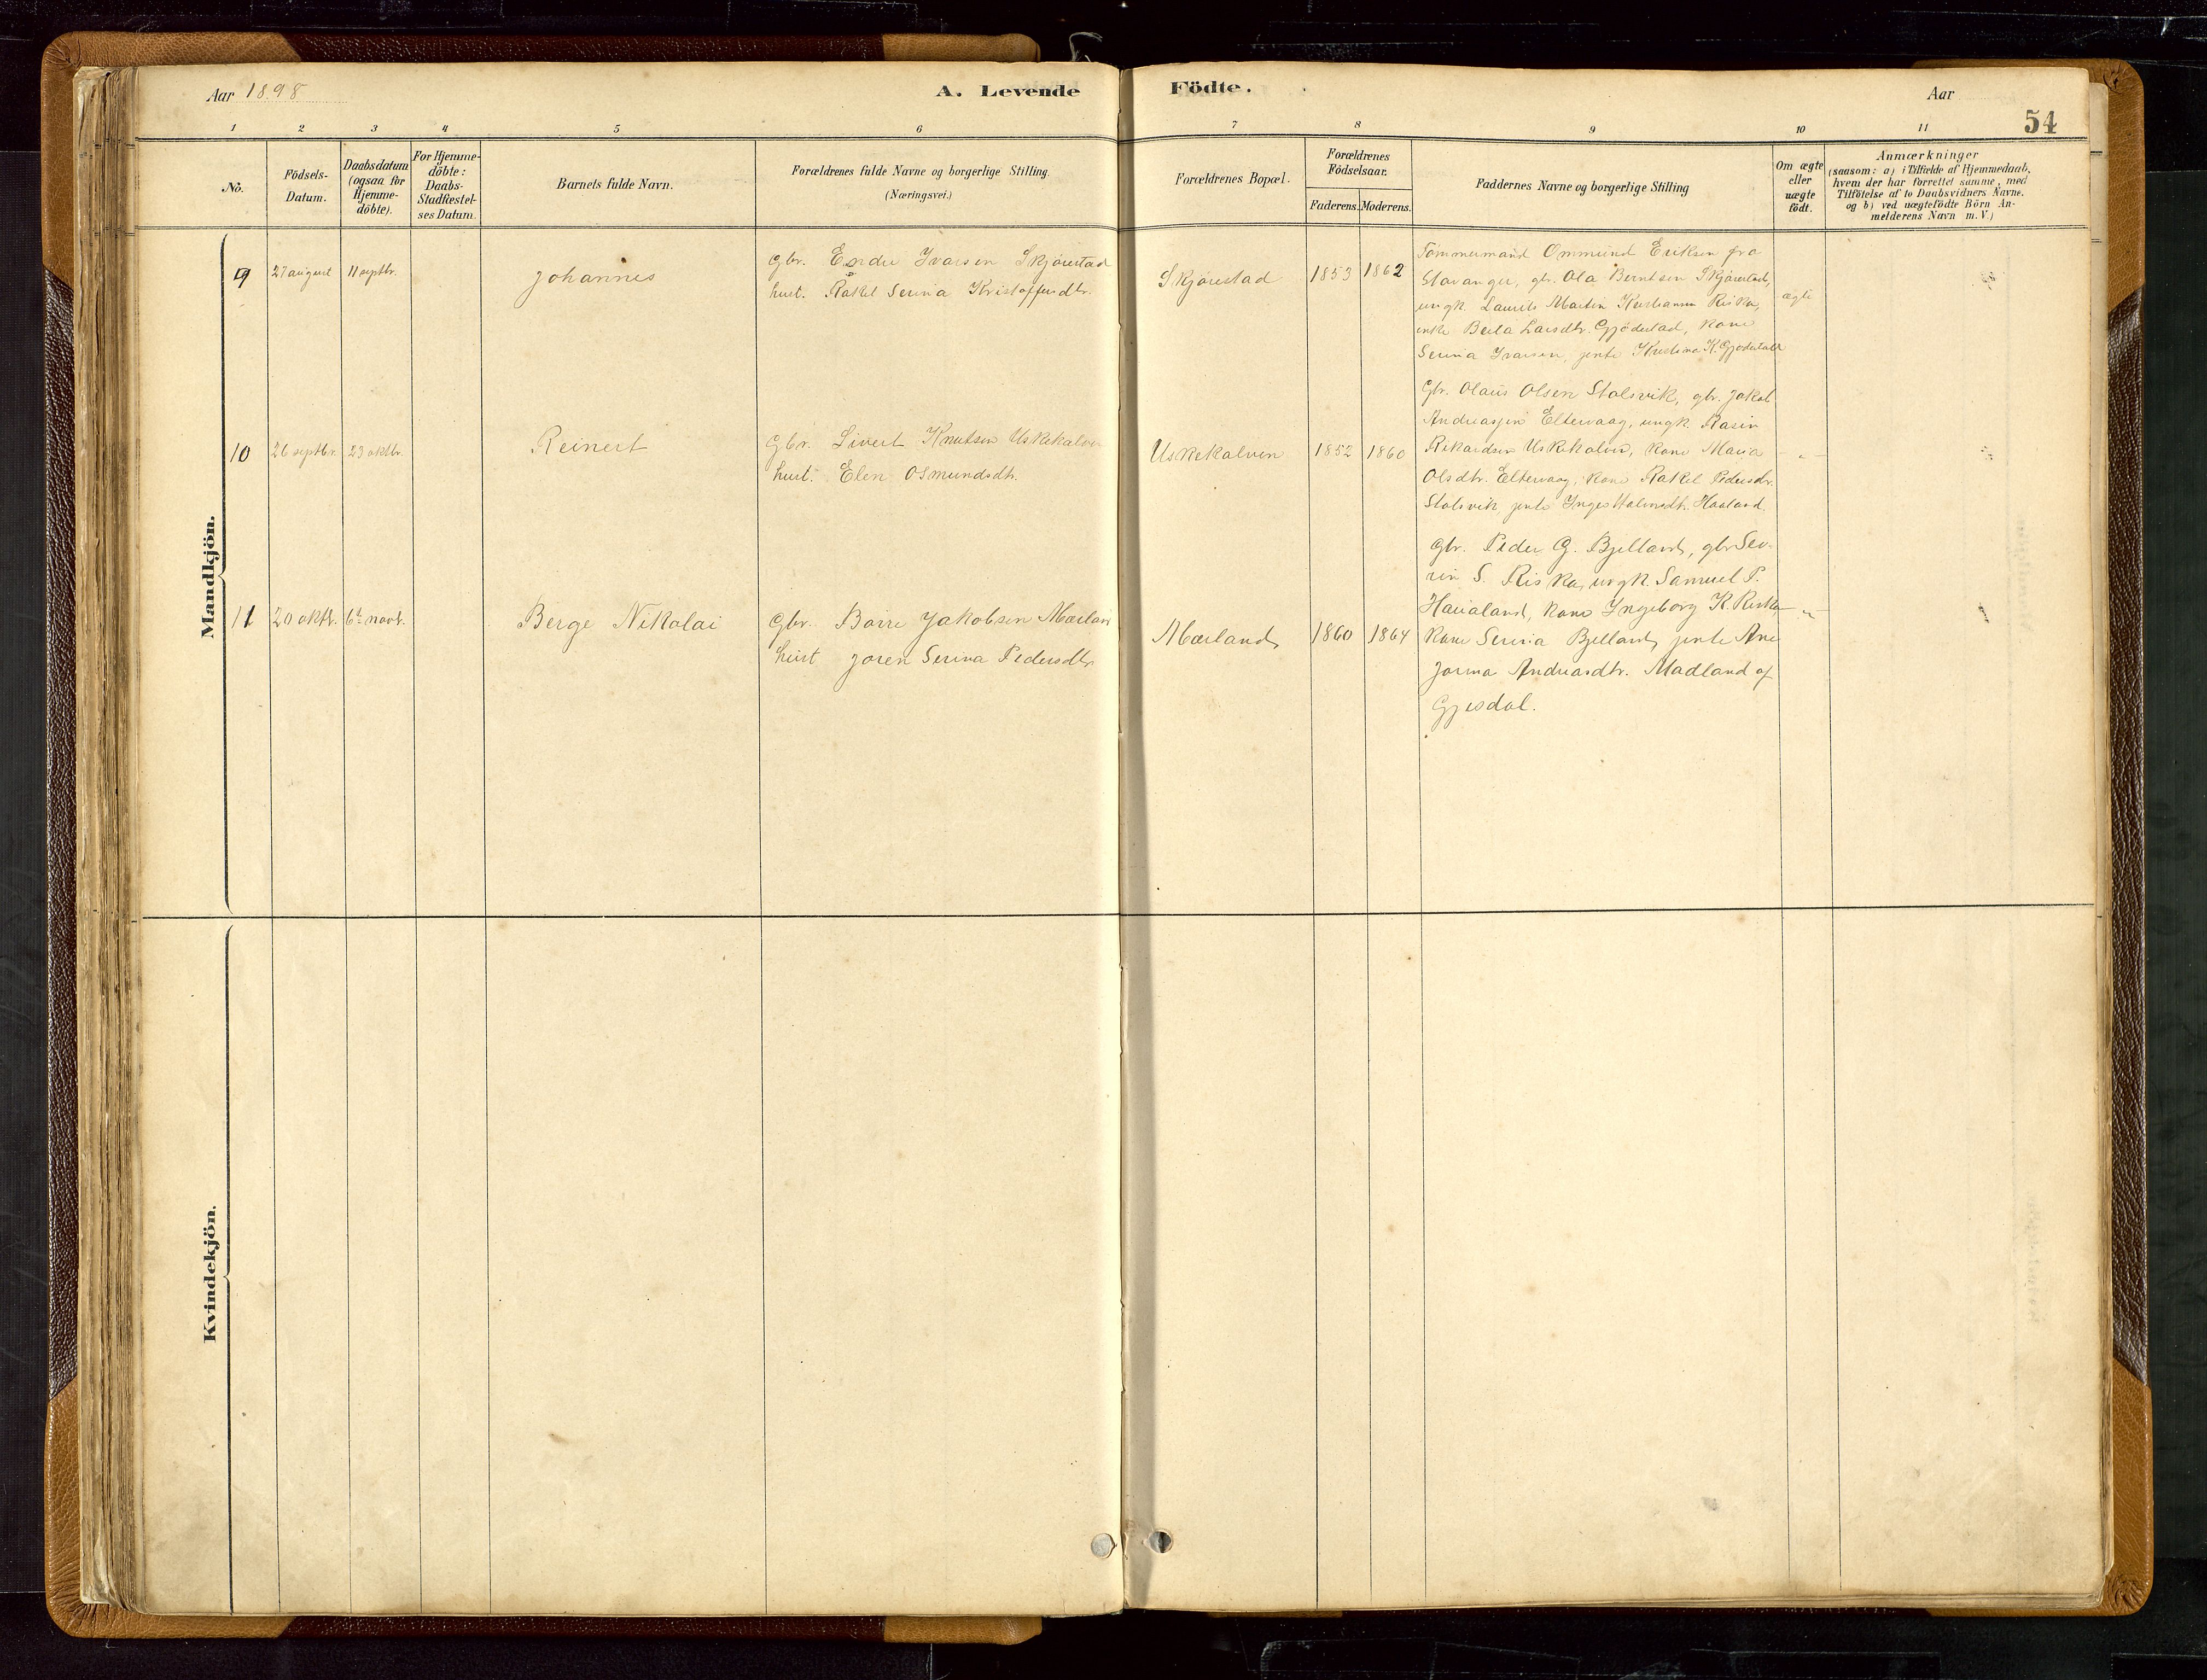 Aar 1898
A. Levende Födte.
Aar
54
1 2 3 4 5 6 7 8 9 10 11
No.
Födsels-
Datum.
Daabsdatum
(ogsaa for
Hjemme-
döbte).
For Hjemme-
döbte:
Daabs-
Stadfæstel-
ses Datum.
Barnets fulde Navn.
Forældrenes fulde Navne og borgerlige Stilling.
(Næringsvei.)
Forældrenes Bopæl.
Forældrenes
Födselsaar.
Faderens. Moderens.
Faddernes Navne og borgerlige Stilling
Om ægte
eller
uægte
födt.
Anmærkninger
(saasom: a) i Tilfælde af Hjemmedaab,
hvem der har forrettet samme, med
Tilföielse af to Daabsvidners Navne.
og b) ved uægtefödte Börn An-
melderens Navn m. V.)
Mandkjön.
9
27 august
11 septbr.
Johannes
Gbr. Endre Ivarsen Skjørestad
hust. Rakel Serina Kristoffersdtr.
Skjørestad
1853
1862
Tømmermand Ommund Eriksen fra
Stavanger, gbr. Ola Berntsen Skjørestad,
ungk. Laurits Martin Riska,
enke Berta Larsdtr. Gjødestad, kone
Serina Ivarsen, jente Kristina K. Gjødestad
ægte
10
26 septbr.
23 oktbr.
Reinert
Gbr. Sivert Knutsen Uskekalven
hust. Elen Osmundsdtr.
Uskekalven
1852
1860
Gbr. Olaus Olsen Stolsvik, gbr. Jakob
Andreassen Eltervaag, ungk. Rasin
Rikardsen Uskekalven, kone Maria
Olsdtr. Eltervaag, kone Rakel Pedersdtr.
Stolsvik, jente Inger Haaland.
- " -
11
20 oktr.
6te novbr.
Berge Nikolai
Gbr. Børre Jakobsen Mæland
hust Joren Serina Pedersdtr.
Mæland
1860
1864
Gbr. Peder G. Bjelland, gbr Sev-
rin S. Riska, ungk. Samuel P.
Haualand, kone Ingeborg K. Riska
kone Serina Bjelland, jente Ane
Jorina Andreasdtr. Madland af
Gjesdal.
- " -
Kvindekjön.